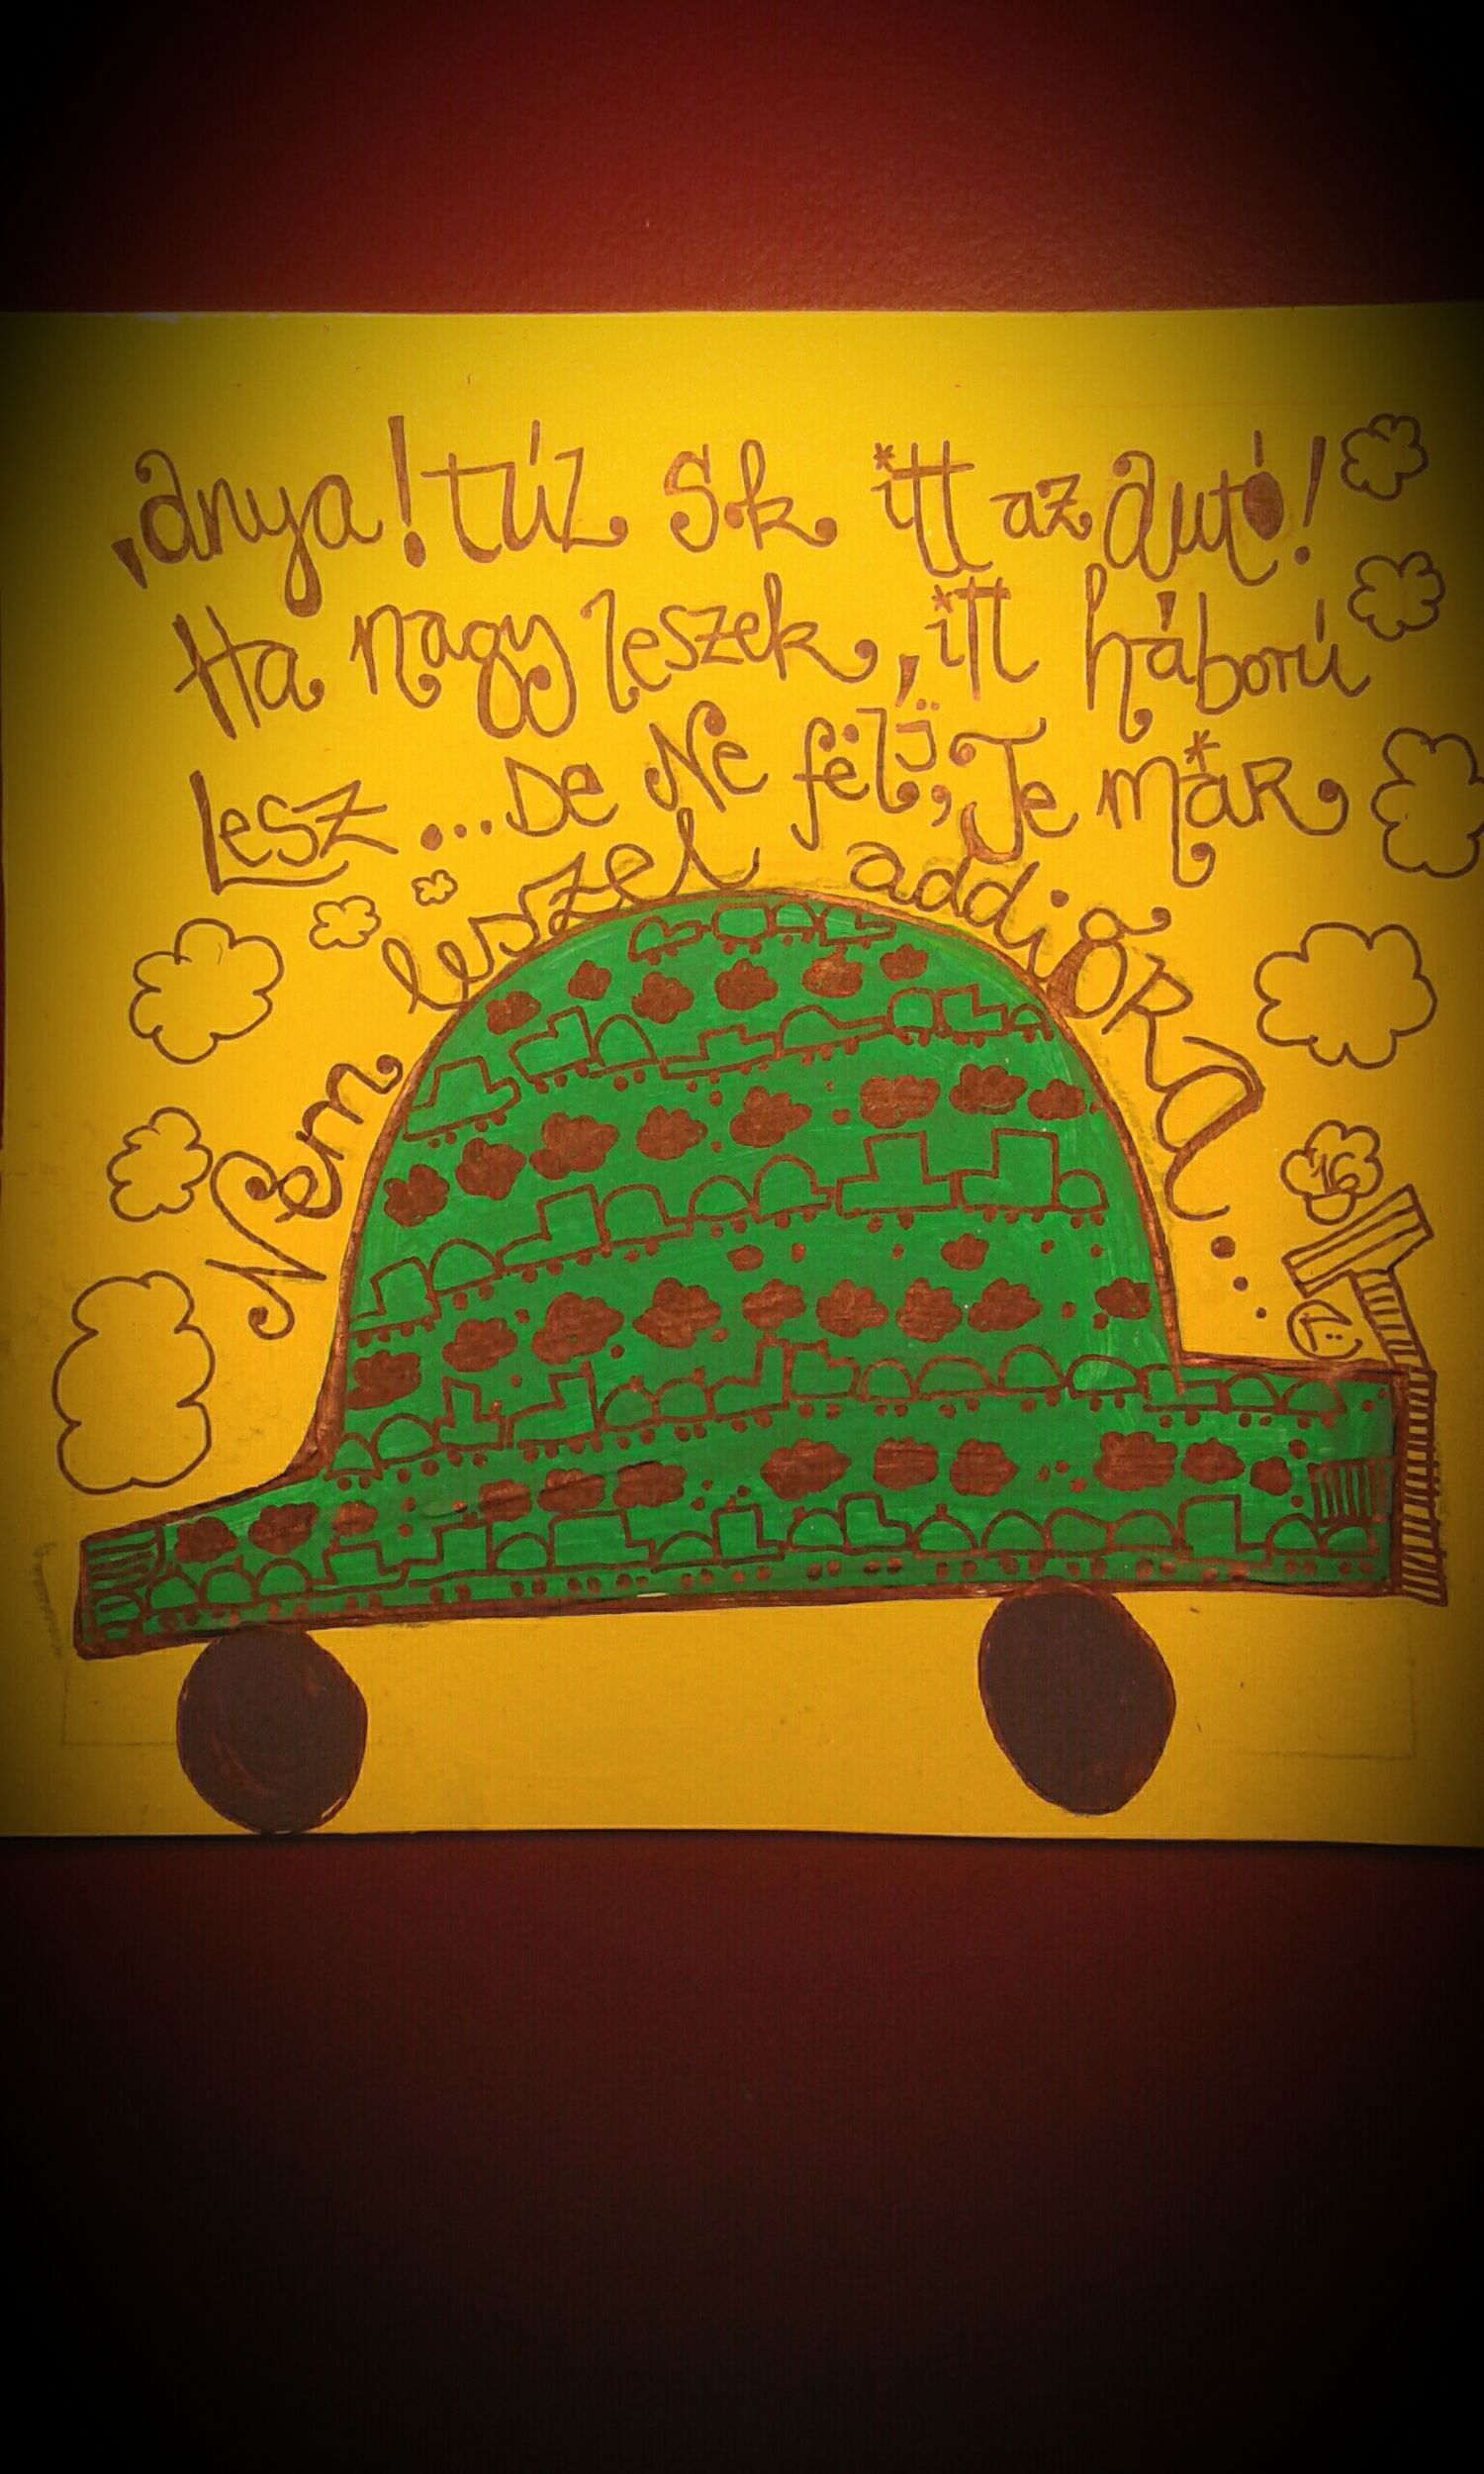 anya! túl sok itt az autó!
Ha nagy leszek, itt háború
Lesz...De Ne félj, Te már
Nem leszel addigra...
16